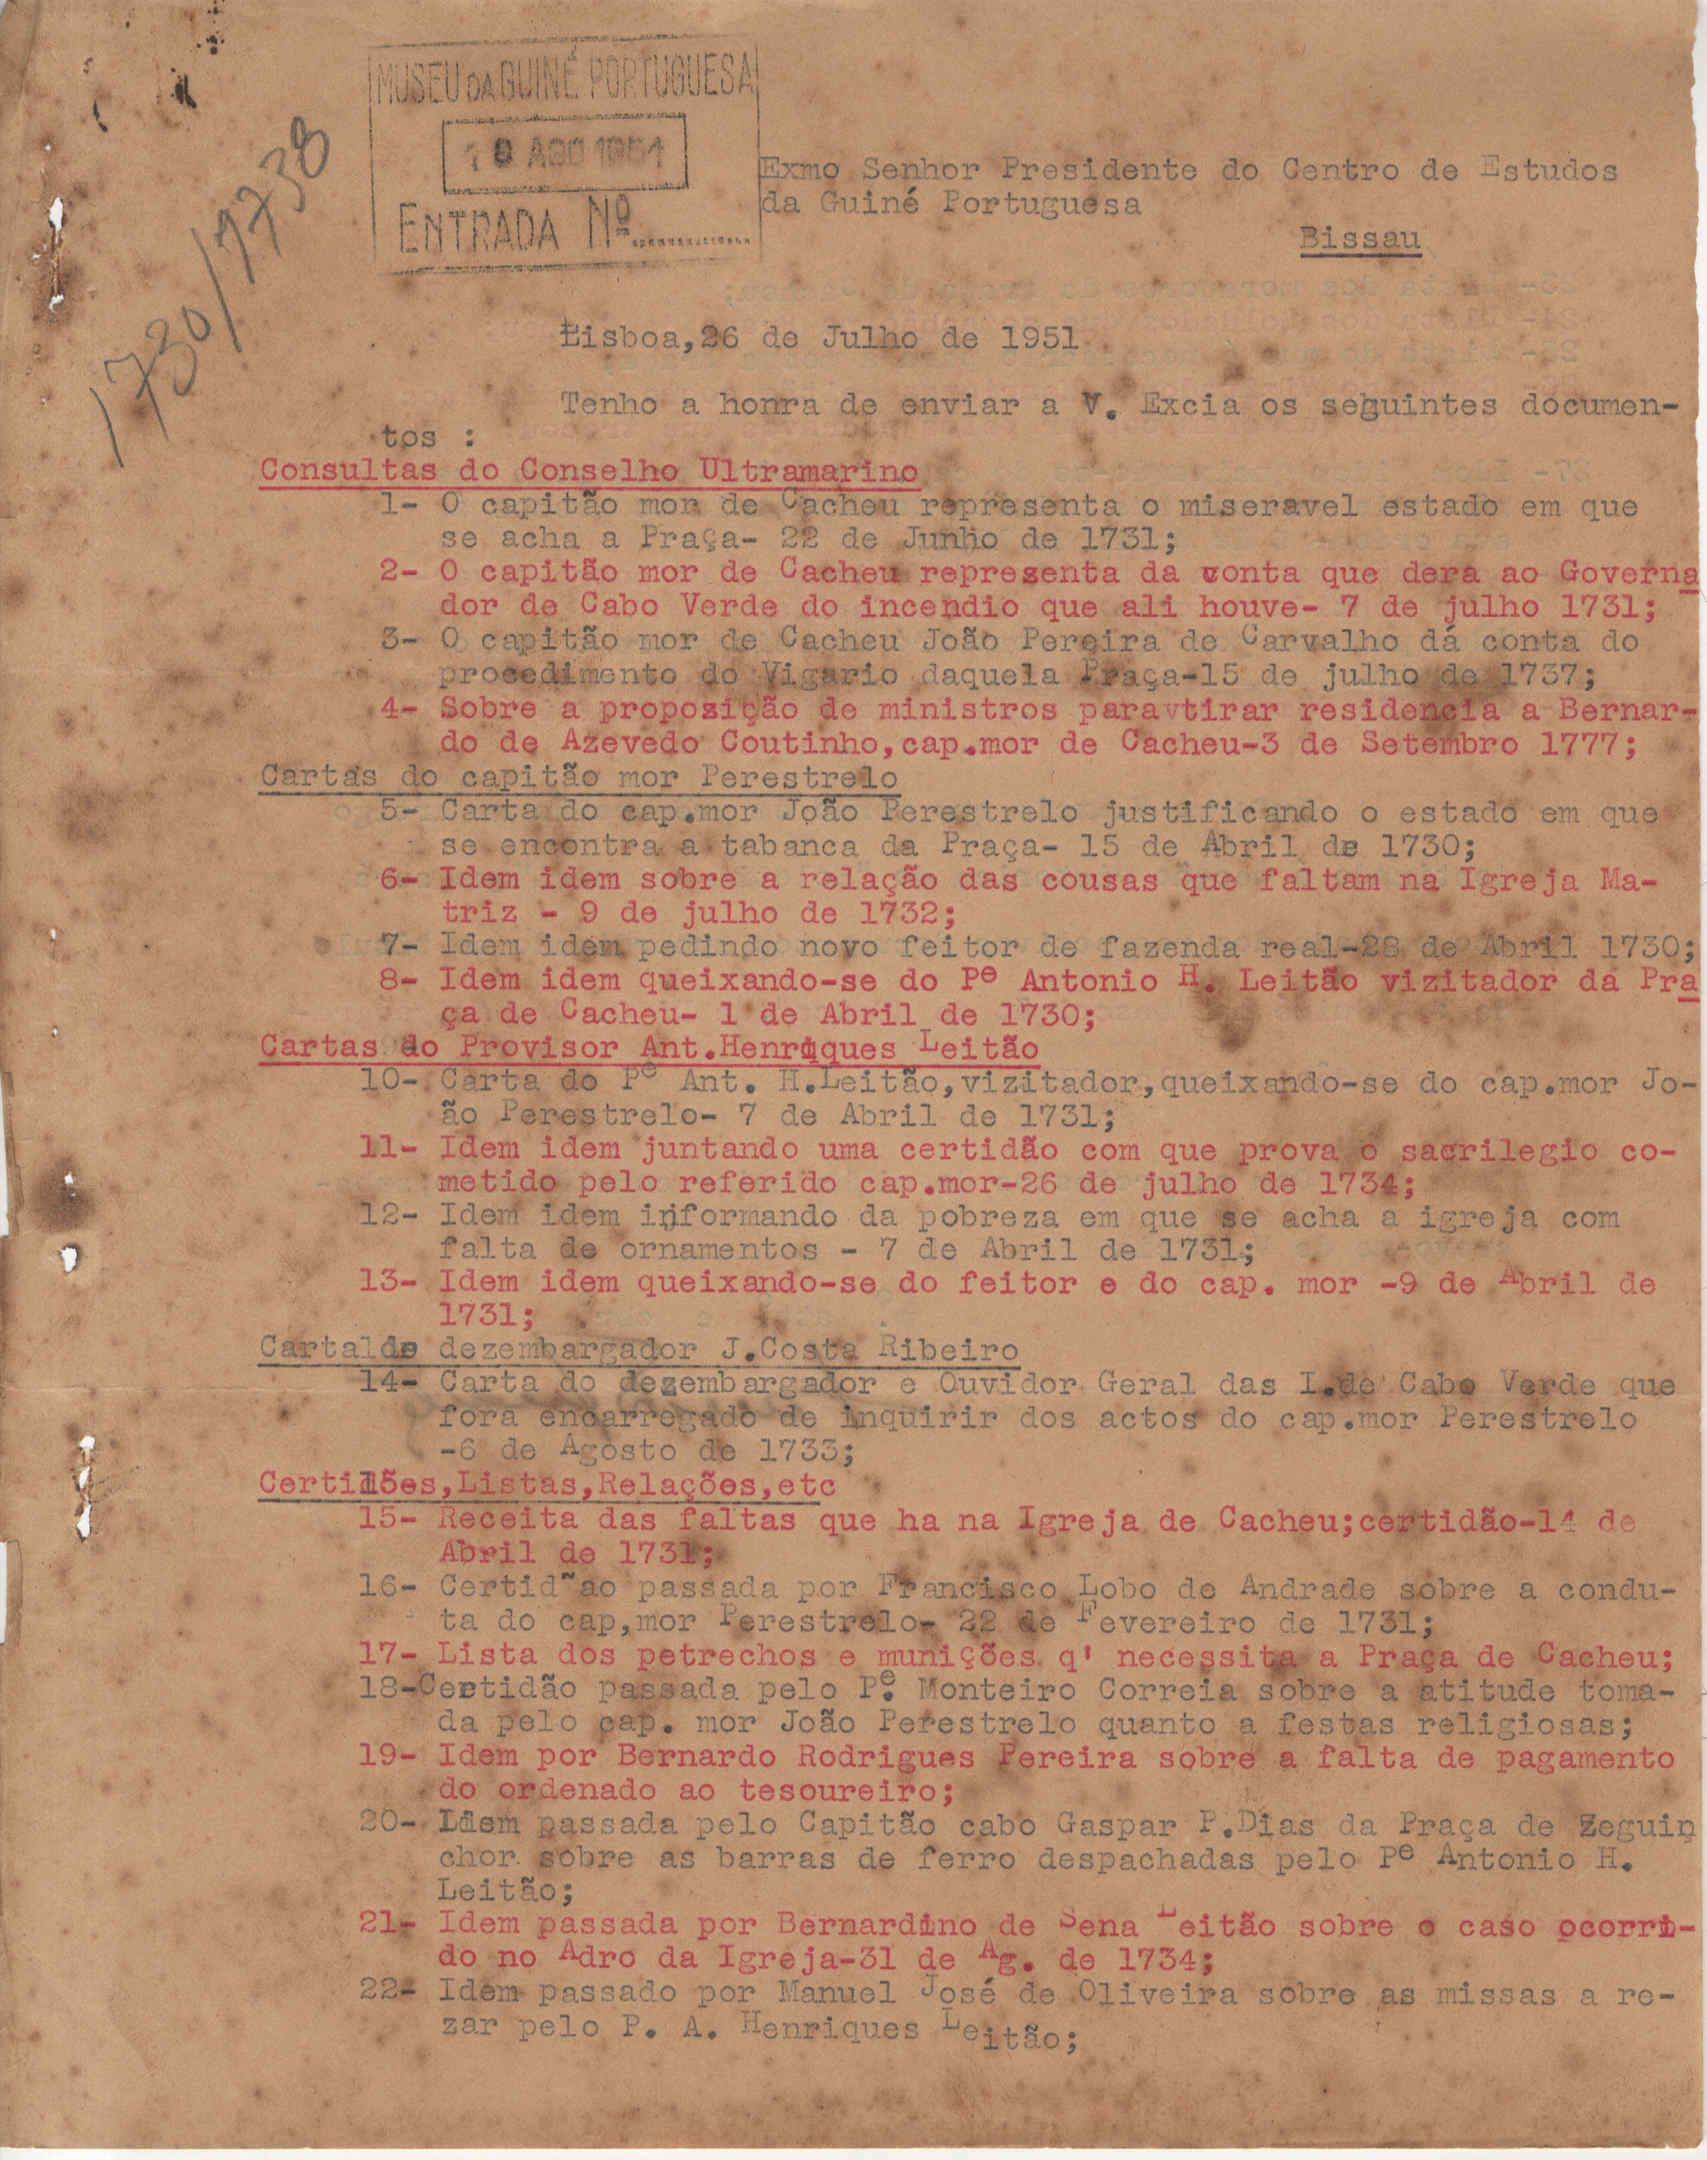 MUSEU DA GUINÉ PORTUGUESA
AGO 1951
ENTRADA Nº
1730/1738
Exmo Senhor Presidente do Centro de Estudos
da Guiné Portuguesa
Bissau
Lisboa,26 de Julho de 1951
Tenho a honra de enviar a V. Excia os seguintes documen-
tos :
Consultas do Conselho Ultramarino
1- O capitão mor de Cacheu representa o miseravel estado em que
se acha a Praça- 22 de Junho de 1731;
2- O capitão mor de Cacheu representa da conta que dera ao Governa
dor de Cabo Verde do incendio que ali houve- 7 de julho 1731;
3- O capitão mor de Cacheu João Pereira de Carvalho dá conta do
procedimento do Vigario daquela Praça-15 de julho de 1737;
4- Sobre a proposição de ministros para tirar residencia a Bernar-
do de Azevedo Coutinho,cap.mor de Cacheu-3 de Setembro 1777;
Cartas do capitão mor Perestrelo
5- Carta do cap.mor João Perestrelo justificando o estado em que
se encontra a tabanca da Praça- 15 de Abril de 1730;
6- Idem idem sobre a relação das cousas que faltam na Igreja Ma-
triz - 9 de julho de 1732;
7- Idem idem pedindo novo feitor de fazenda real-28 de Abril 1730;
8- Idem idem queixando-se do Pe Antonio H. Leitão vizitador da Pra
ça de Cacheu- 1 de Abril de 1730;
Cartas do Provisor Ant.Henriques Leitão
10- Carta do Pe Ant. H.Leitão,vizitador,queixando-se do cap.mor Jo-
ão Perestrelo- 7 de Abril de 1731;
11- Idem idem juntando uma certidão com que prova o sacrilegio co-
metido pelo referido cap.mor-26 de julho de 1734;
12- Idem idem informando da pobreza em que se acha a igreja com
falta de ornamentos - 7 de Abril de 1731;
13- Idem idem queixando-se do feitor e do cap. mor -9 de Abril de
1731;
Carta do dezembargador J.Costa Ribeiro
14- Carta do dezembargador e Ouvidor Geral das I.de Cabo Verde que
fora encarregado de inquirir dos actos do cap.mor Perestrelo
-6 de Agosto de 1733;
Certidões,Listas,Relações,etc
15- Receita das faltas que ha na Igreja de Cacheu;certidão-14 de
Abril de 1731;
16- Certid~ao passada por Francisco Lobo de Andrade sobre a condu-
ta do cap,mor Perestrelo- 22 de Fevereiro de 1731;
17- Lista dos petrechos e munições q' necessita a Praça de Cacheu;
18-Certidão passada pelo Pe. Monteiro Correia sobre a atitude toma-
da pelo cap. mor João Perestrelo quanto a festas religiosas;
19- Idem por Bernardo Rodrigues Pereira sobre a falta de pagamento
do ordenado ao tesoureiro;
20- Idem passada pelo Capitão cabo Gaspar P.Dias da Praça de Zeguin
chor sobre as barras de ferro despachadas pelo Pe Antonio H.
Leitão;
21- Idem passada por Bernardino de Sena Leitão sobre o caso ocorri-
do no Adro da Igreja-31 de Ag. de 1734;
22- Idem passado por Manuel José de Oliveira sobre as missas a re-
zar pelo P. A. Henriques Leitão;